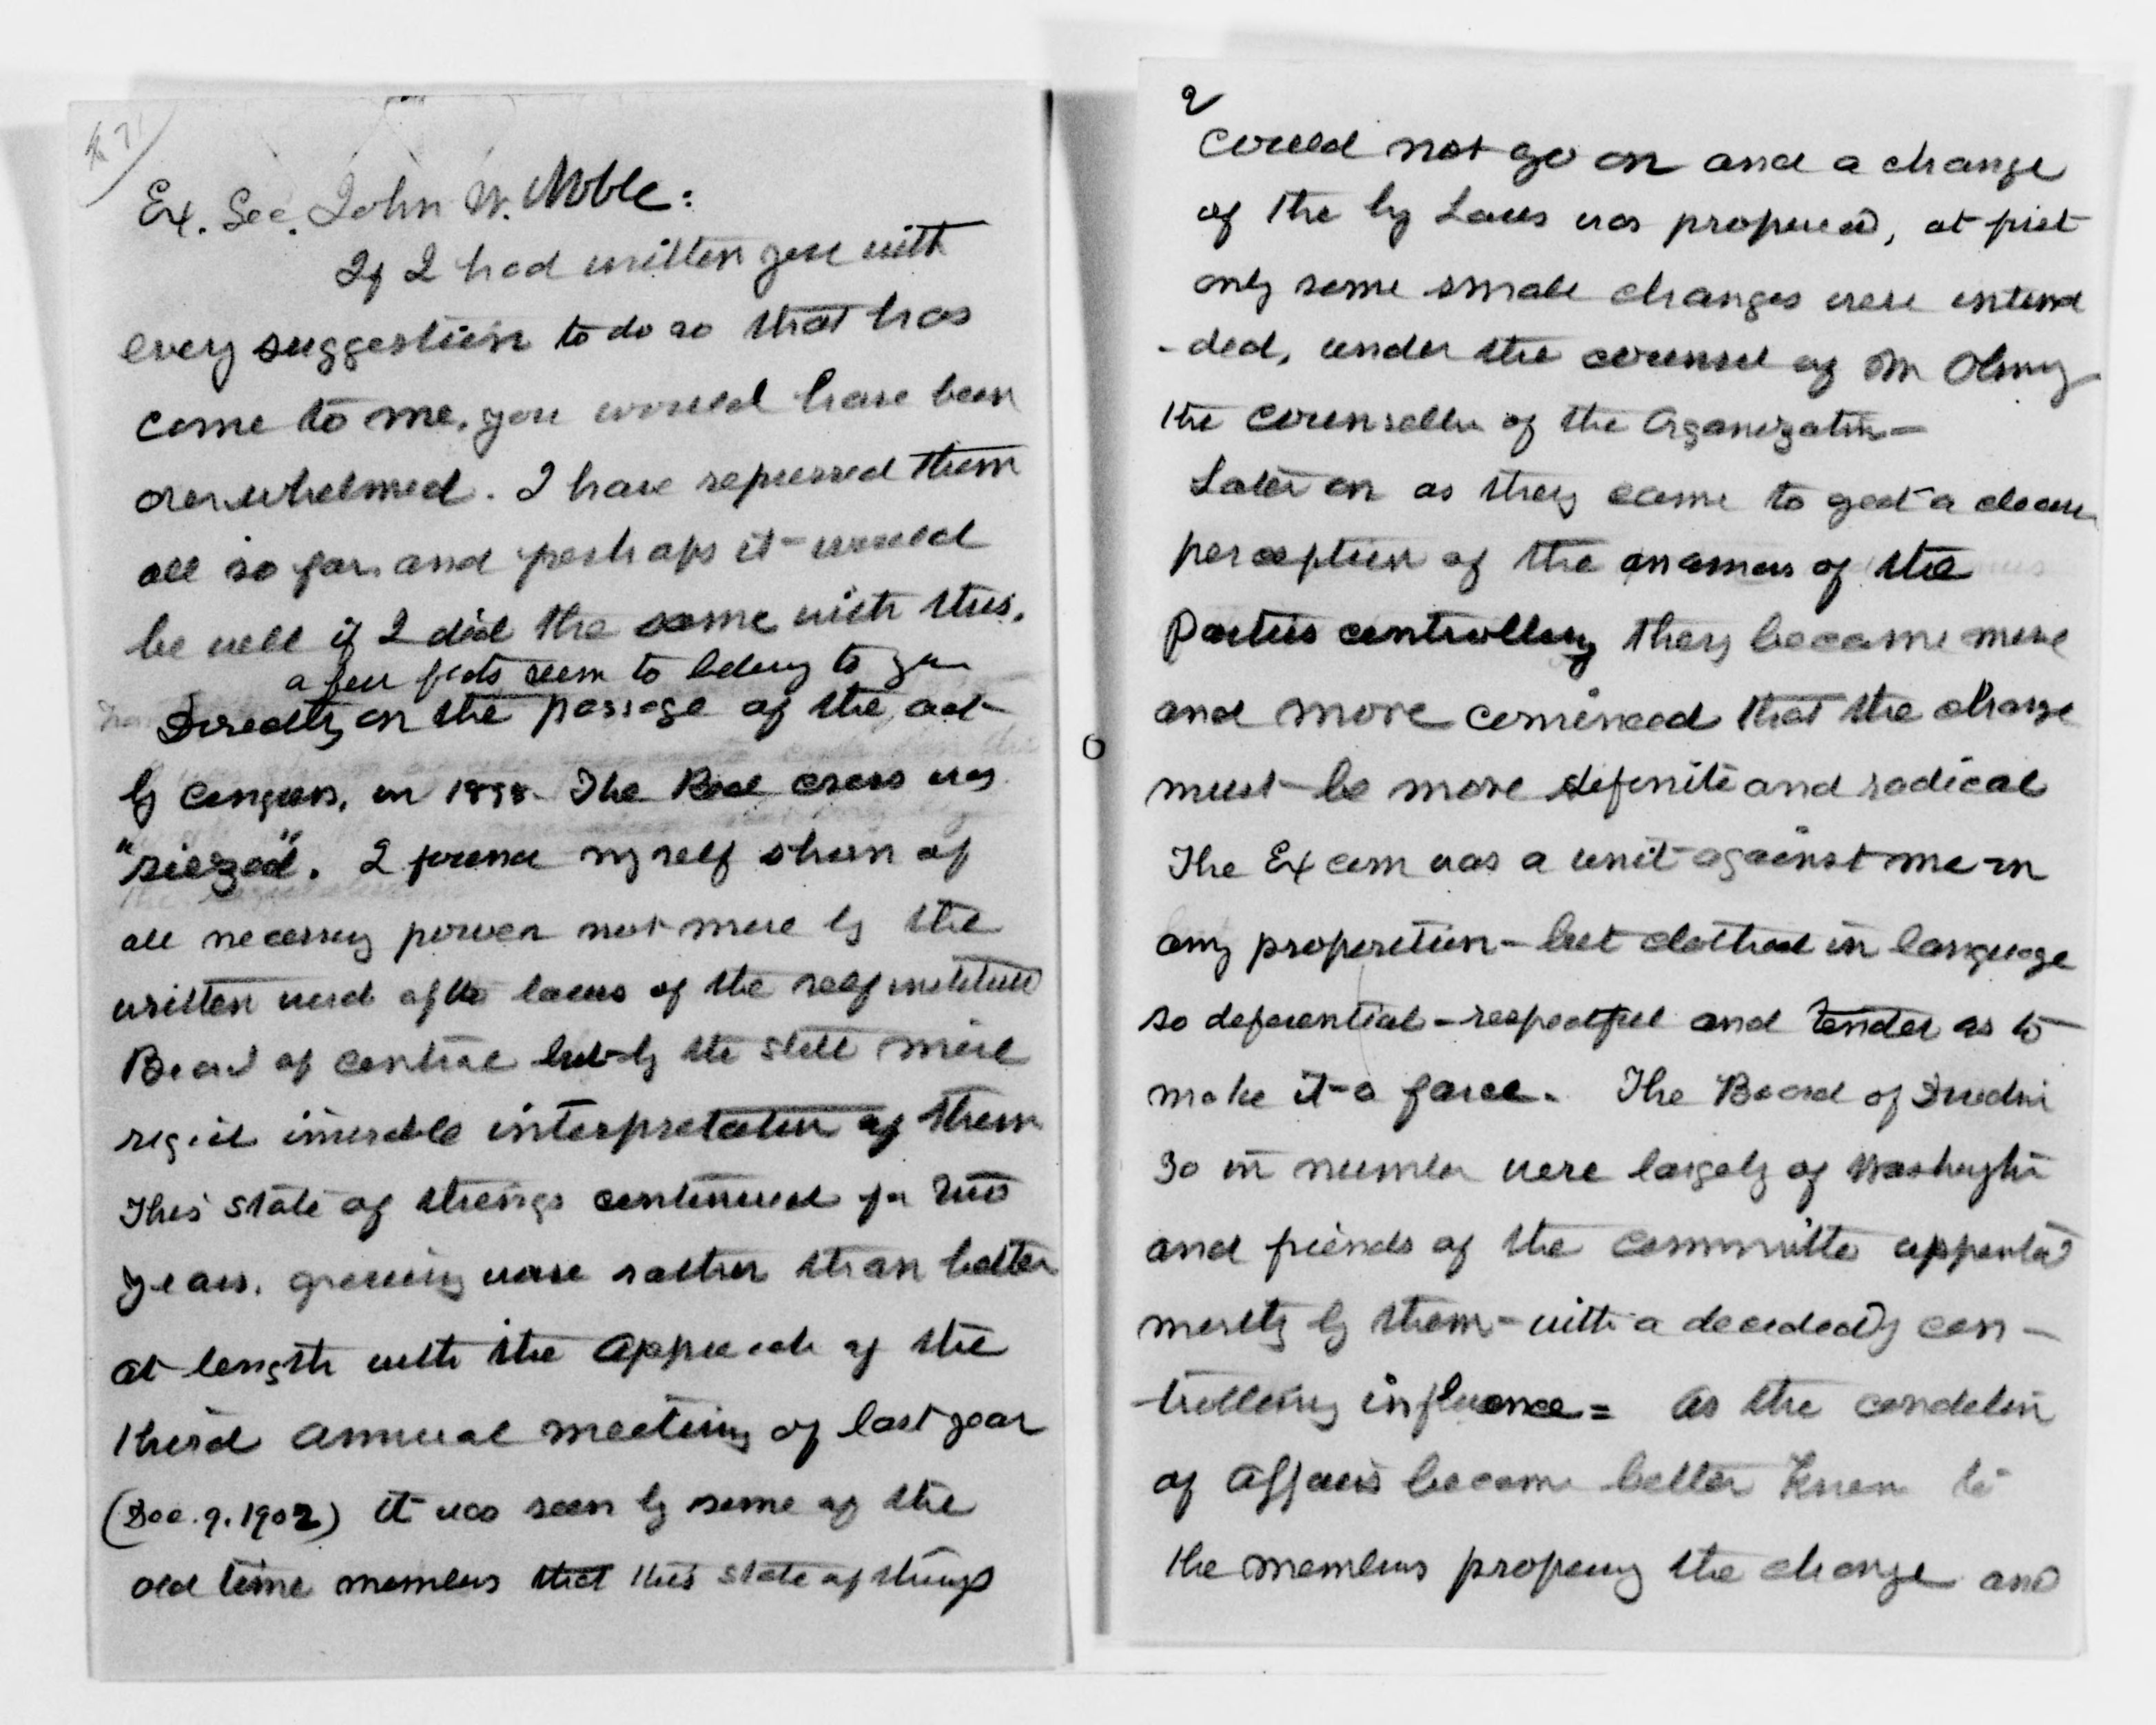 Ex. Sec. John W. Noble:
If I had written you with
every suggestion to do so that has
come to me, you would have been
overwhelmed. I have repressed them
all so far, and perhaps it would
be well if I did the same with this.
a few facts seem to belong to you
Directly on the passage of the act
by Congress, in 1898 The Red cross was
"siezed". I found myself shorn of
all necessary power not mere by the
written word of the laws of the self instituted
Board of control but by the still more
rigid
interpretation of them
This state of things continued for two
years, growing worse rather than better
at length with the approach of the
third annual meeting of last year
(Dec. 9. 1902) it was seen by some of the
old time members that this state of things
2
could not go on and a change
of the by Laws was proposed, at first
only some small changes were inten
-ded, under the counsel of Mr Olney
the counsellor of the Organization—
Later on as they came to get a clearer
perception of the animus of the
Parties controlling they became more
and more convinced that the change
must be more definite and radical
The Ex com was a unit against me in
any proposition - but clothed in language
so deferential - respectful and tender as to
make it a farce. The Board of Directors
30 in number were largely of Washington
and friends of the committee appointed
mostly by them - with a decidedly con-
trolling influence = As the condition
of affairs became better known to
the members proposing the change and